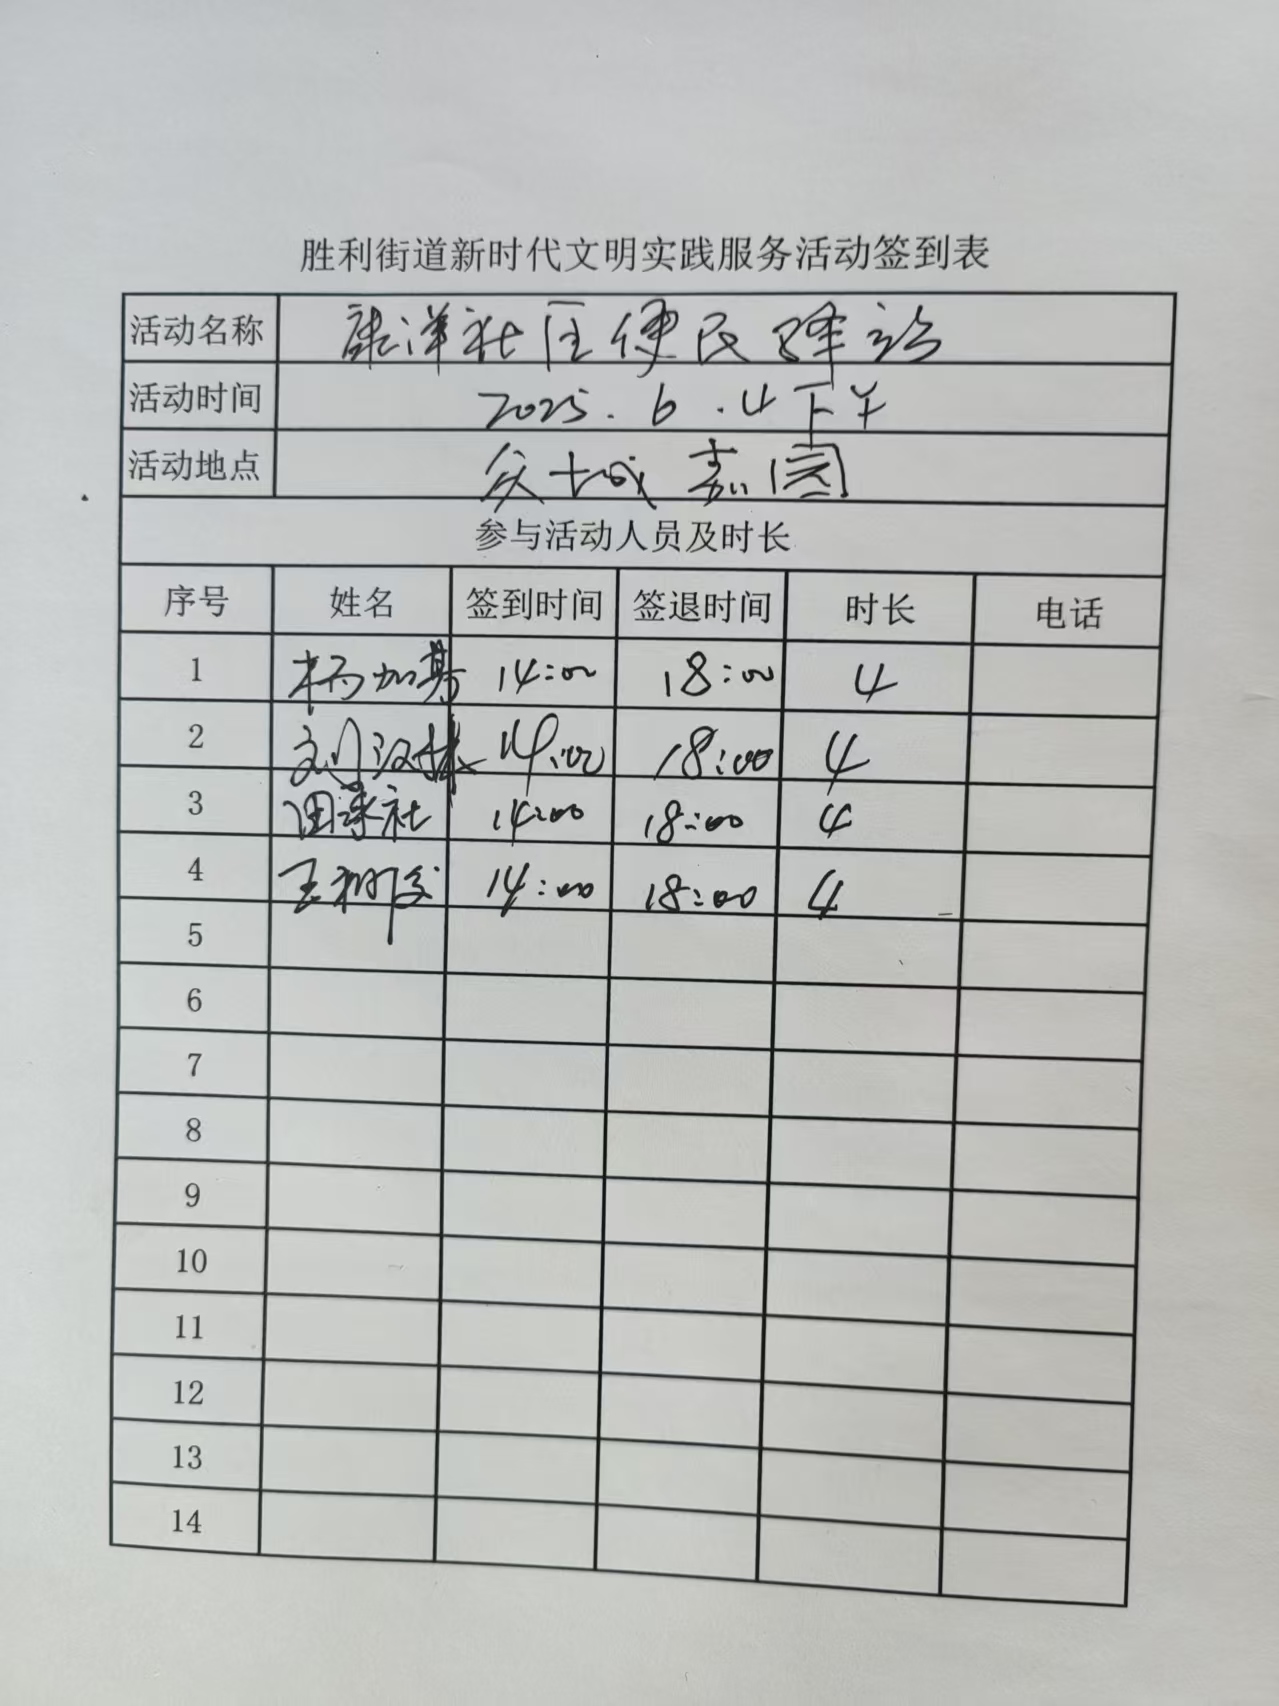 胜利街道新时代文明实践服务活动签到表
活动名称 康洋社区便民驿站
活动时间 2025.6.4下午
活动地点 众城嘉园
参与活动人员及时长
序号 姓名 签到时间 签退时间 时长 电话
1 14:00 18:00 4
2 刘汉林 14:00 18:00 4
3 社 14:00 18:00 4
4 王树 14:00 18:00 4
5
6
7
8
9
10
11
12
13
14